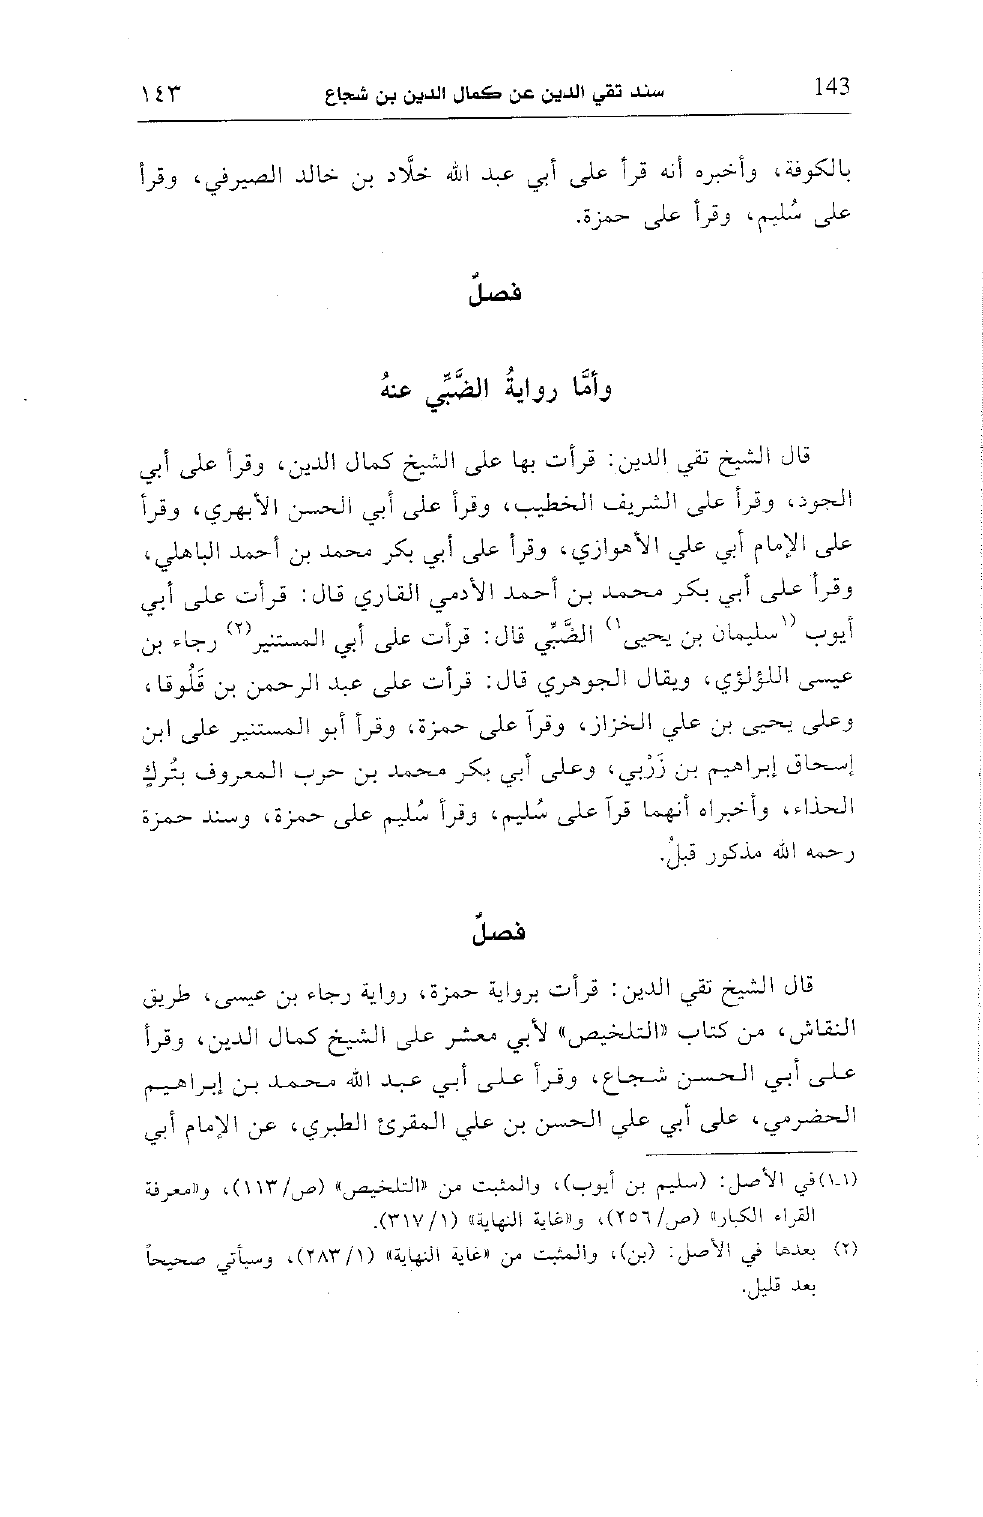 143 سند تقي الدين عن كمال الدين بن شجاع ١٤٣
بالكوفة، وأخبره أنه قرأ على أبي عبد الله خلَّاد بن خالد الصيرفي، وقرأ
على سُليم، وقرأ على حمزة.
فصلٌ
وأمَّا روايةُ الضَّبِّي عنهُ
قال الشيخ تقي الدين: قرأت بها على الشيخ كمال الدين، وقرأ على أبي
الجود، وقرأ على الشريف الخطيب، وقرأ على أبي الحسن الأبهري، وقرأ
على الإمام أبي علي الأهوازي، وقرأ على أبي بكر محمد بن أحمد الباهلي،
وقرأ على أبي بكر محمد بن أحمد الأدمي القاري قال: قرأت على أبي
أيوب (١سليمان بن يحيى١) الضَّبِّي قال: قرأت على أبي المستنير(٢) رجاء بن
عيسى اللؤلؤي، ويقال الجوهري قال: قرأت على عبد الرحمن بن قَلُوقا،
وعلى يحيى بن علي الخزاز، وقرآ على حمزة، وقرأ أبو المستنير على ابن
إسحاق إبراهيم بن زَرْبي، وعلى أبي بكر محمد بن حرب المعروف بتُركٍ
الحذاء، وأخبراه أنهما قرآ على سُليم، وقرأ سُليم على حمزة، وسند حمزة
رحمه الله مذكور قبلُ.
فصلٌ
قال الشيخ تقي الدين: قرأت برواية حمزة، رواية رجاء بن عيسى، طريق
النقاش، من كتاب «التلخيص» لأبي معشر على الشيخ كمال الدين، وقرأ
على أبي الحسن شجاع، وقرأ على أبي عبد الله محمد بن إبراهيم
الحضرمي، على أبي علي الحسن بن علي المقرئ الطبري، عن الإمام أبي
(١-١) في الأصل: (سليم بن أيوب)، والمثبت من «التلخيص» (ص/١١٣)، و«معرفة
القراء الكبار» (ص/٢٥٦)، و«غاية النهاية» (١/ ٣١٧).
(٢) بعدها في الأصل: (بن)، والمثبت من «غاية النهاية» (١/ ٢٨٣)، وسيأتي صحيحاً
بعد قليل.